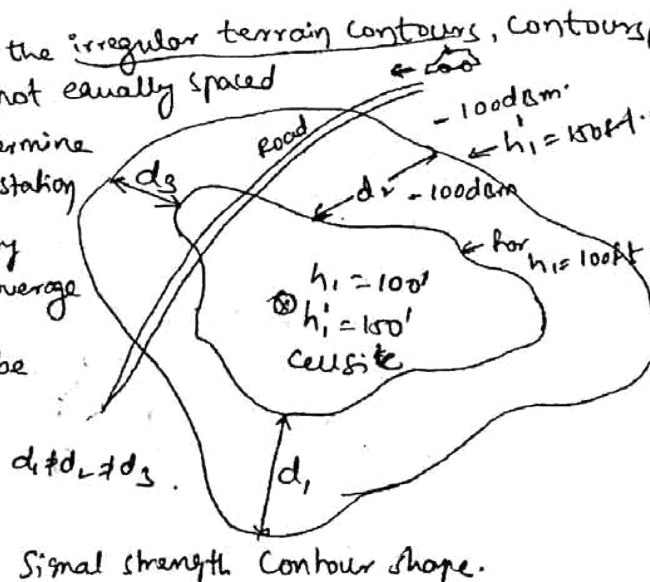 the irregular terrain contours, contours
not equally spaced
ermine
station
d3
Road
- 100dBm.
h1' = 150ft.
d2 - 100dBm
y
for
h1 = 100ft
verage
h1 = 100'
h1' = 150'
Cellsite
be
d1 ≠ d2 ≠ d3 .
d1
Signal strength Contour shape.